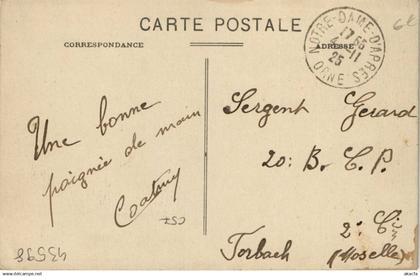 CARTE POSTALE
CORRESPONDANCE
ADRESSE
NOTRE-DAME-D'APRES
ORNE
25
Une bonne
poignée de main
Sergent Gerard
20: B. C. P.
2e Cie
Forbach (Moselle)
43598